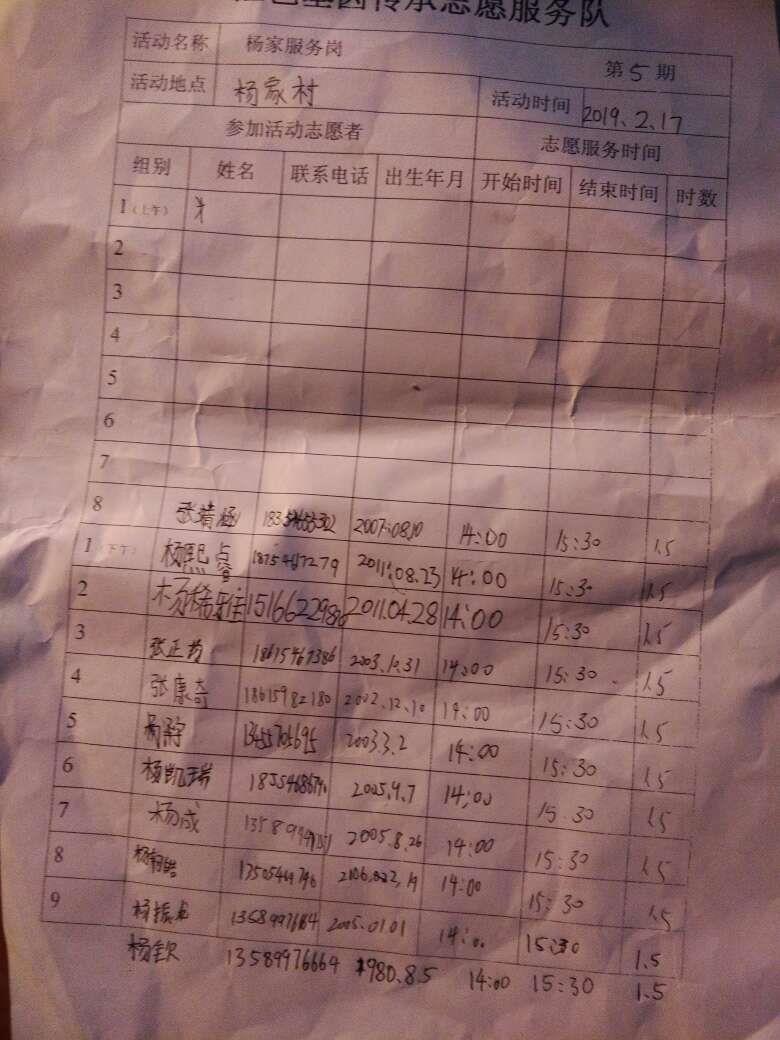 红色基因传承志愿服务队
活动名称 杨家服务岗 第5期
活动地点 杨家村 活动时间 2019.2.17
参加活动志愿者 志愿服务时间
组别 姓名 联系电话 出生年月 开始时间 结束时间 时数
1(上午)
2
3
4
5
6
7
8 张靖涵 2007.08.10 14:00 15:30 1.5
1(下午) 杨熙 18754617279 2011.08.23 14:00 15:30 1.5
2 杨稀雅 1516622986 2011.04.28 14:00 15:30 1.5
3 张正 18615467386 2003.10.31 14:00 15:30 1.5
4 张康奇 18615982180 2002.12.10 14:00 15:30 1.5
5 13455705695 2003.3.2 14:00 15:30 1.5
6 杨凯瑞 2005.9.7 14:00 15:30 1.5
7 杨成 2005.8.26 14:00 15:30 1.5
8 14:00 15:30 1.5
9 杨振龙 2005.01.01 14:00 15:30 1.5
杨钦 13589976664 1980.8.5 14:00 15:30 1.5